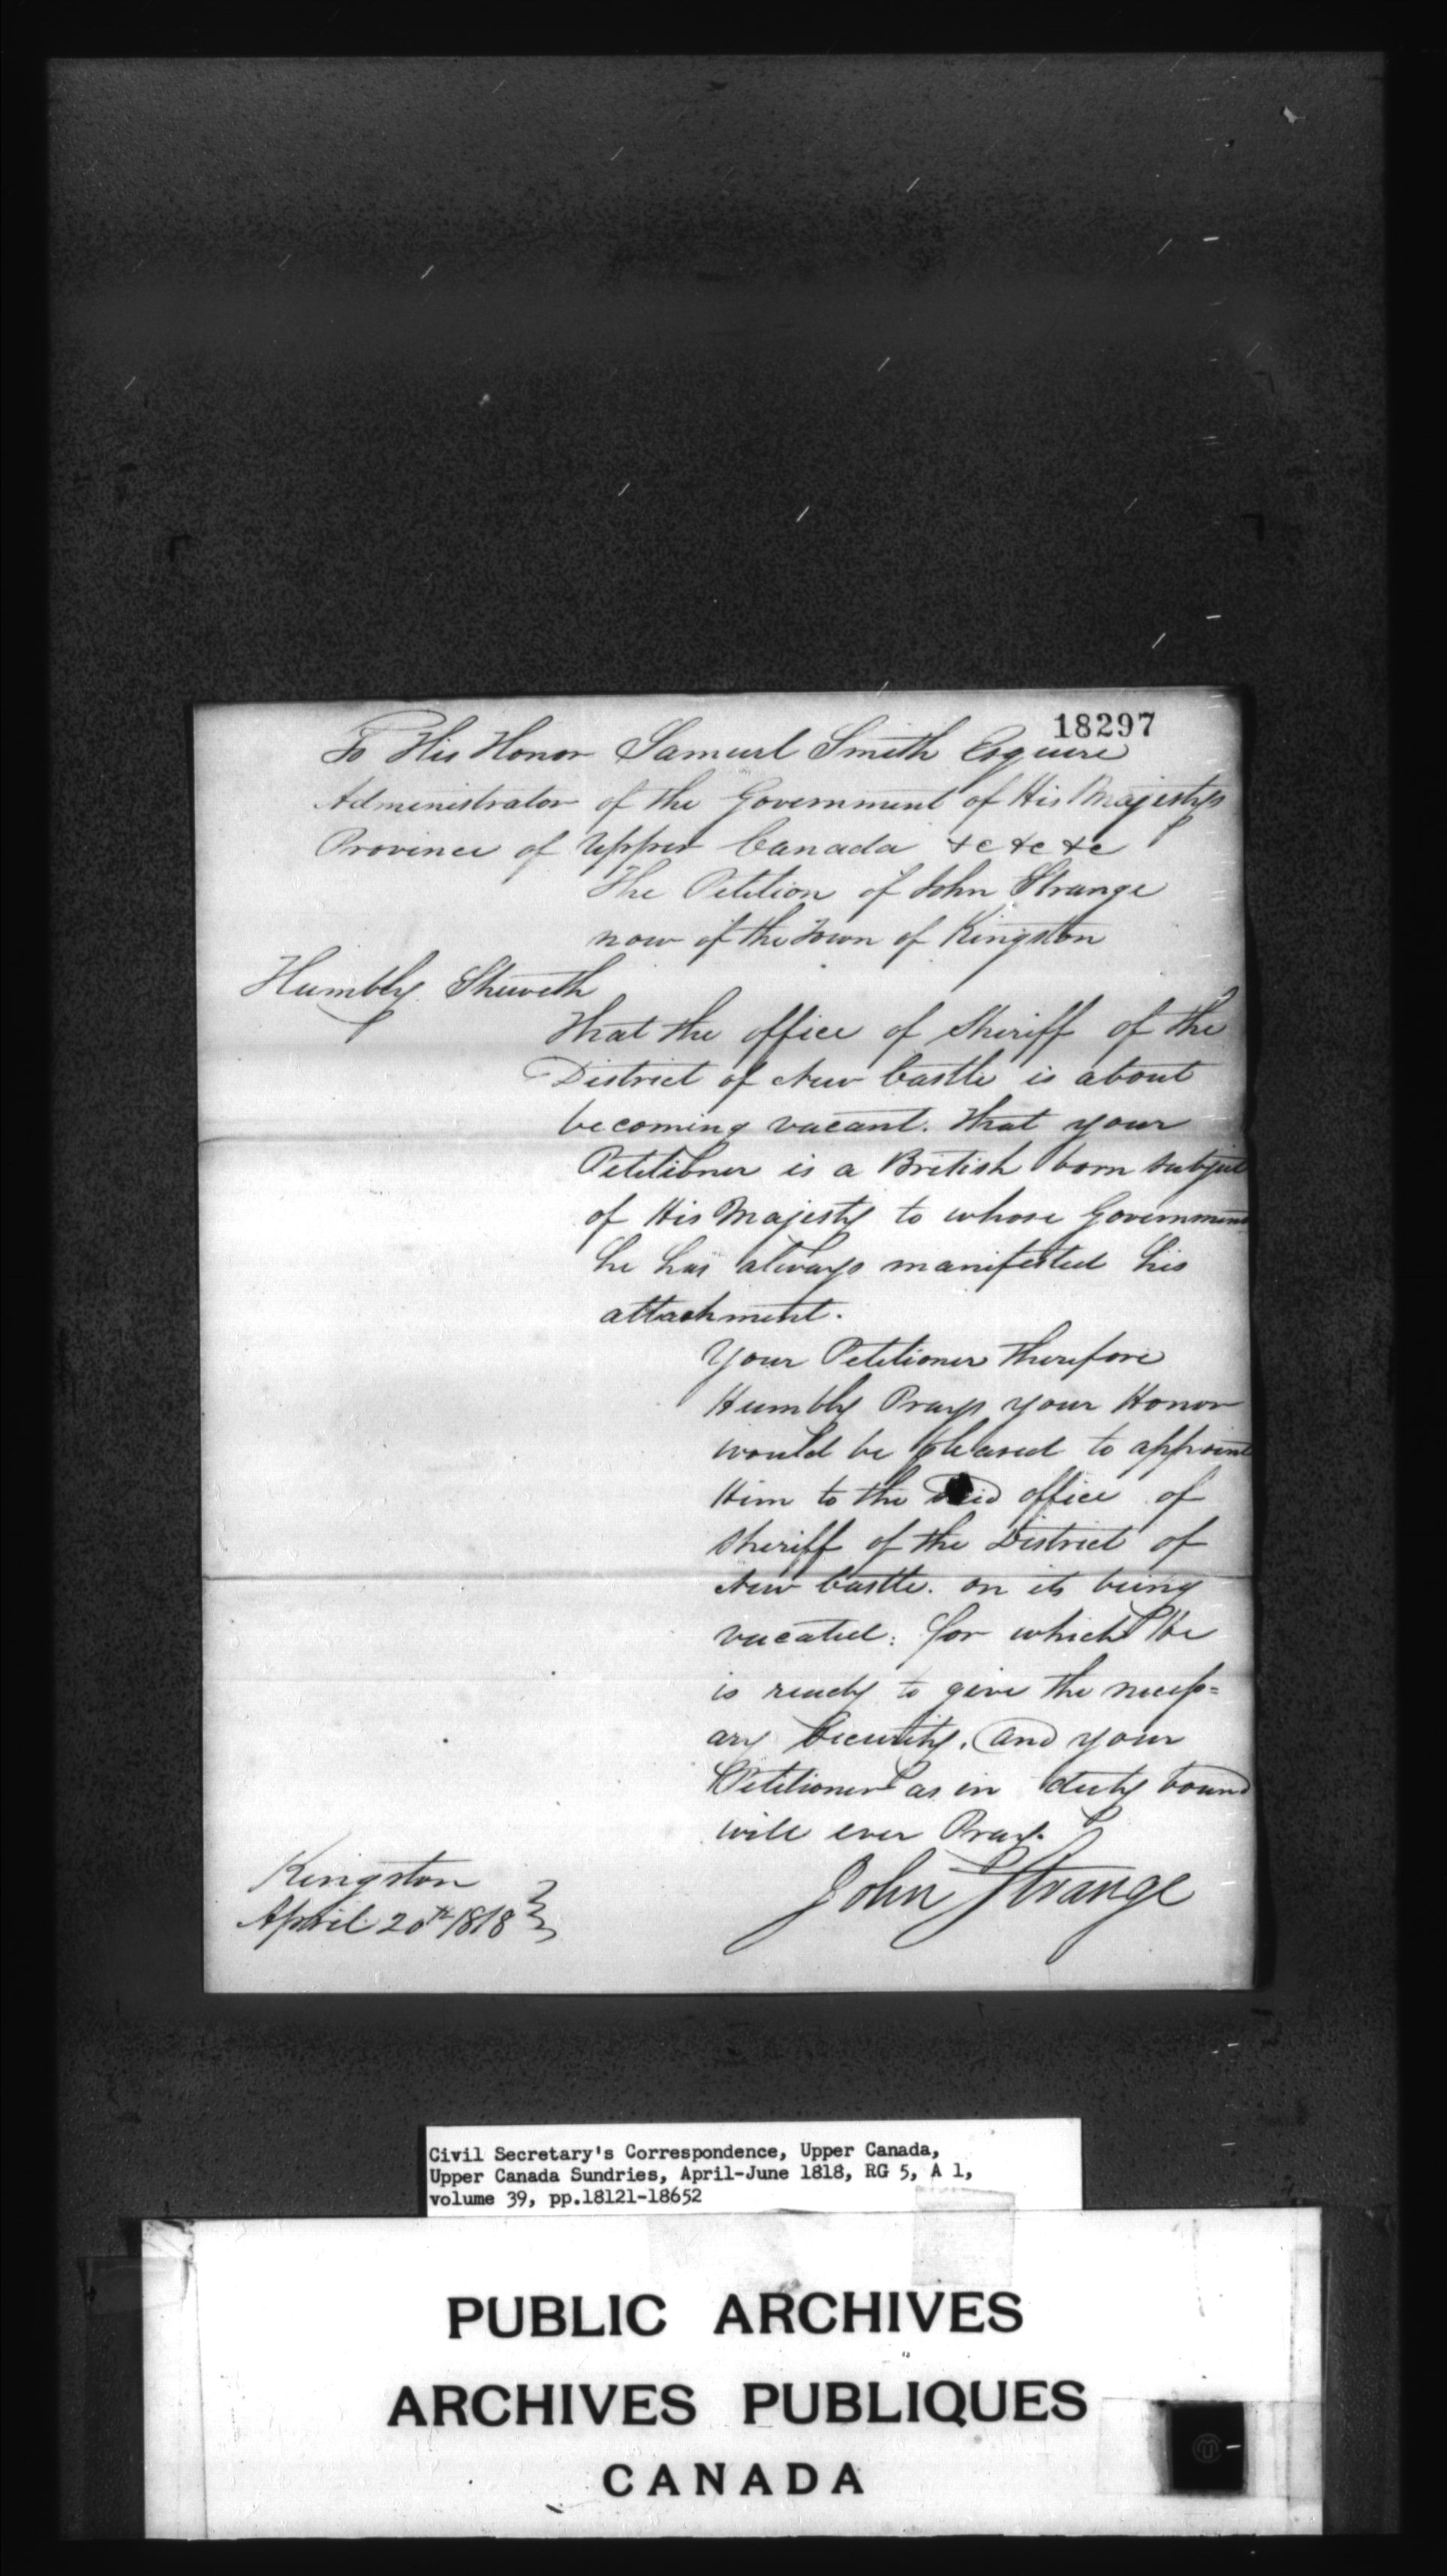 18297
To His Honor Samuel Smith Esquire
Administrator of the Government of His Majestys
Province of Upper Canada &c &c &c
The Petition of John Strange
now of the Town of Kingston
Humbly Sheweth
That the office of Sheriff of the
District of New Castle is about
becoming vacant. that your
Petitioner is a British born subject
of His Majesty to whose Government
he has always manifested his
attachment.
Your Petitioner therefore
Humbly Prays your Honor
would be pleased to appoint
Him to the said office of
Sheriff of the District of
New Castle. on its being
vacated: for which He
is ready to give the necess=
ary Security. and your
Petitioner as in duty bound
will ever Pray.
John Strange
Kingston
April 20th 1818
Civil Secretary's Correspondence, Upper Canada,
Upper Canada Sundries, April-June 1818, RG 5, A 1,
volume 39, pp.18121-18652
PUBLIC ARCHIVES
ARCHIVES PUBLIQUES
CANADA